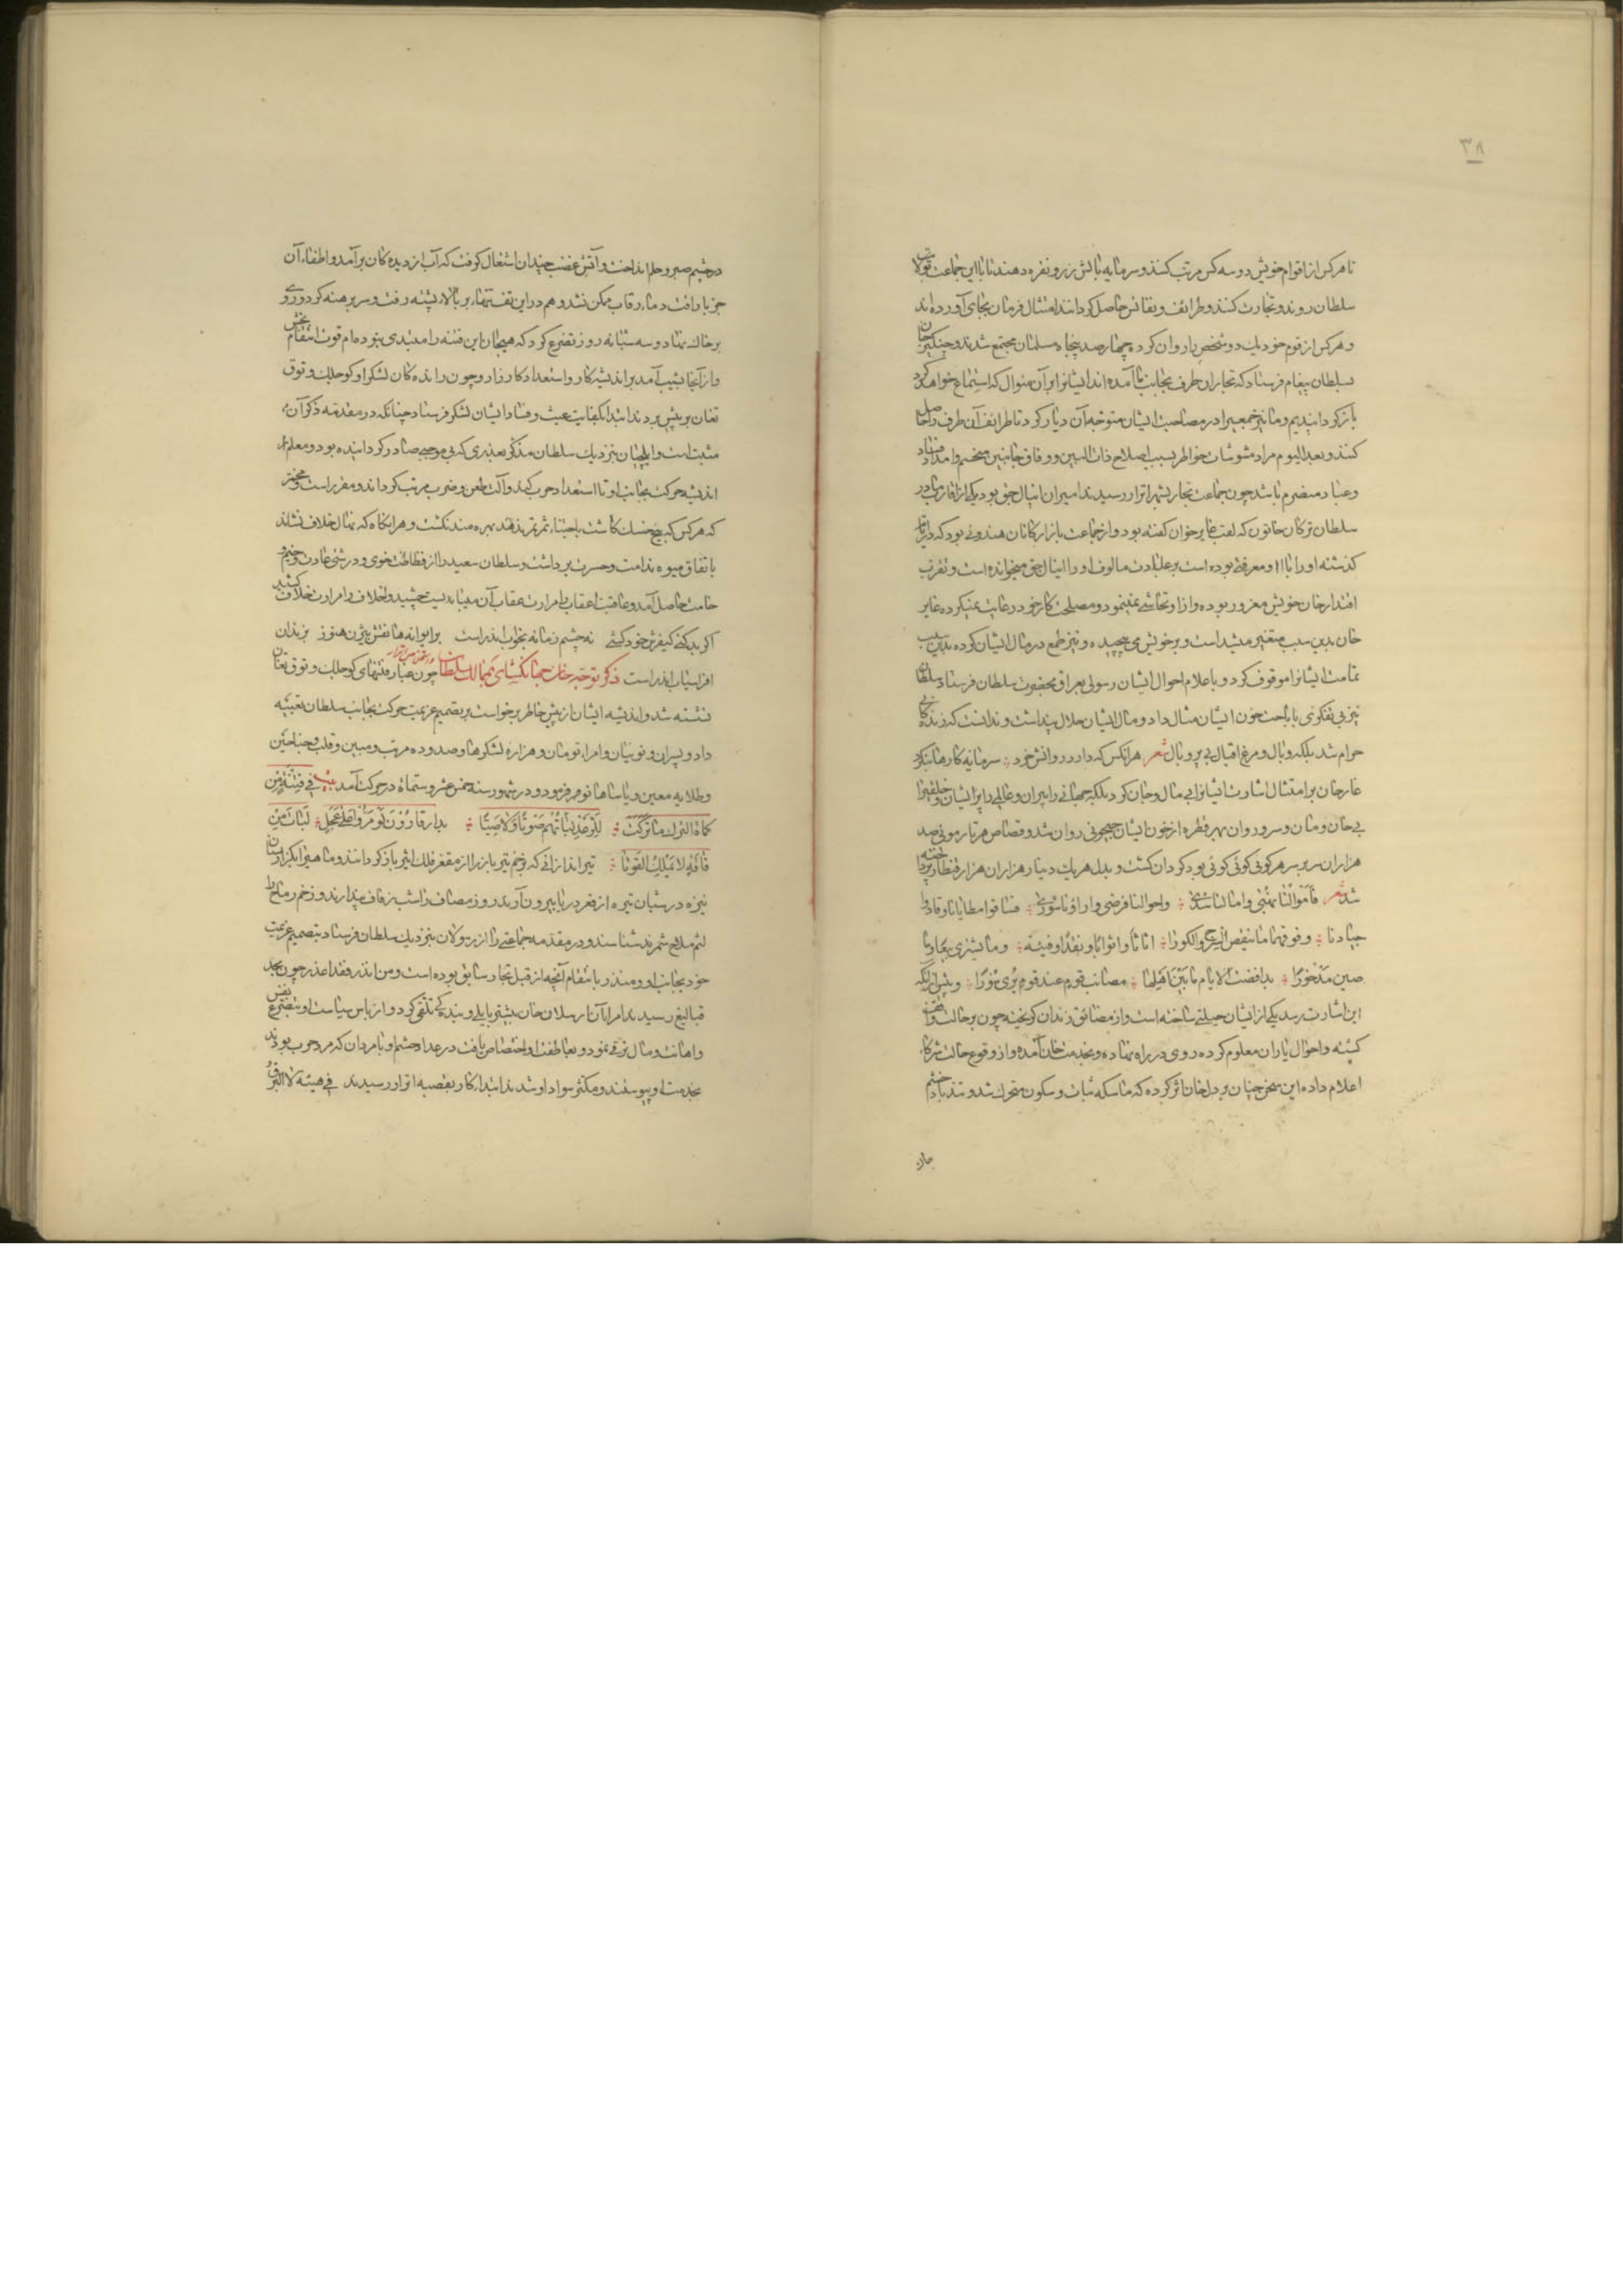 ٣٨
تا هر کس از اقوام خویش دو سه کس مرتب کنند و سرمایه بالش زر و نقره دهند تا با این جماعت بولایت
سلطان روند و تجارت کنند و طرائف و نفائس حاصل کردانند امتثال فرمان بجای آورده اند
و هر کس از قوم خود یک دو شخص را روان کرد چهارصد پنجاه مسلمان مجتمع شدند و چنکیز خان
بسلطان پیغام فرستاد که تجار ان طرف بجانب ما آمده اند ایشانرا بر آن منوال که استماع خواهد کرد
باز کردانیدیم و ما نیز جمعیرا در مصاحبت ایشان متوجه آن دیار کرد تا طرائف آن طرف را حاصل
کنند و بعد الیوم مواد مشوشات خواطر بسبب اصلاح ذات البین و وفاق جانبین منحسم و امداد فساد
و عناد منصرم باشد چون جماعت تجار بشهر اترار رسیدند امیر ان اینال جق بود یکی از اقارب مادر
سلطان ترکان خاتون که لقب غایر خوان کفته بود و از جماعت بازارکانان هندوئی بود که در ایام
کذشته او را با او معرفتی بوده است بر عادت مالوف او را اینال جق میخوانده است و بقرب
اقتدار خان خویش مغرور بوده و ازو تحاشی نمینمود و مصلحت کار خود رعایت نمیکرده غایر
خان بدین سبب متغیر میشد است و بر خویش می پیچید و نیز طمع در مال ایشان کرده بدین سبب
تمامت ایشانرا موقوف کرد و با علام احوال ایشان رسولی بعراق بحضرت سلطان فرستاد سلطان
نیز بی تفکری باباحت خون ایشان مثال داد و مال ایشان حلال پنداشت و ندانست که زندکانی
حرام شد بلکه وبال و مرغ اقبال بی پر و بال شعر هر انکس که دارد روانش خرد سرمایه کارها بنکرد
غایر خان بر امتثال اشارت ایشانرا بی مال و جان کرد بلکه جهانی را ویران و عالمی را پریشان و خلقیرا
بی خان و مان و سرور و ان بهر قطره از خون ایشان جیحونی روان شد و قصاص هر تار موئی صد
هزاران سر بر سر هر کوئی کوئی بود کردان کشت و بدل هر یک دینار هزاران هزار قنطار پرداخته
شد شعر فاموالنا نهبی و امالنا سدی واحوالنا فرضی و اراؤنا شوری فساقوا مطایانا وقادوا
جیادنا وفوقهما ما ینقص السرج والکورا اثاثا واثوابا ونقدا وقینة وما یشتری بیعا وما
صین مذخورا بذا قضت الایام ما بین اهلها مصائب قوم عند قوم یری سورا و پیش از آنکه
این اشارت رسد یکی از ایشان حیلتی ساخته است و از مضائق زندان کریخته چون بر حالت واقف
کشته و احوال یاران معلوم کرده روی در راه نهاده و بخدمت خان آمده و از وقوع حالت شرکاء
اعلام داده این سخن چنان بر دل خان اثر کرده که ماسکه ثبات و سکون متحرک شد و تند باد خشم
در چشم صبر و حلم انداخت و آتش غضب چندان اشتعال کرفت که آب از دیده کان بر آمد و اطفاء آن
جز باراقت دماء رقاب ممکن نشد و هم در این تف تنها، بر بالاء پشته رفت و سر برهنه کرد و روی
بر خاک نهاد و سه شبانه روز تضرع کرد که هیجان این فتنه را مبتدی نبوده ام قوت انتقام بخش
و از آنجا بشیب آمد بر اندیشه کار و استعداد کارزار و چون رانده کان لشکر او کوچلک و توق
تغان بر پیش بردند ابتدا بکفایت عیث و فساد ایشان لشکر فرستاد چنانکه در مقدمه ذکر آن
مثبت است و ایلچیان بنزدیک سلطان مذکر بغدری که بی موجبی صادر کردانیده بود و معلم از
اندیشه حرکت بجانب او تا استعداد حرب کند و آلت طعن و ضرب مرتب کرداند و مقرر است
که هر کس که بیخ خسک کاشت باجتناء ثمرتی بذهند بهره مند نکشت و هر انکاه که نهال خلاف نشاند
باتفاق میوه ندامت و حسرت برداشت و سلطان سعید را از فظاظت خوی و درشتی عادت و خیم
حامت حاصل آمد و عاقبت اعقاب را مرارت عقاب آن می بایست چشید و اخلاف را مرارت خلاف کشید
اکر بد کنی کیفرش خود کشی نه چشم زمانه بخواب اندر است بر ایوانها نقش بیژن هنوز بزندان
افراسیاب اندر است ذکر توجه خان جهانکشای بممالک سلطان چون غبار فتنهای کوچلک و توق تغان
نشسته شد و اندیشه ایشان از پیش خاطر برخواست بر تصمیم عزیمت حرکت بجانب سلطان تعبیه
داد و پسران و نوینان و امراء تومان و هزاره لشکرها و صد و ده مرتب و مبین و قلب و جناحین
و طلایه معین و یاساها نو فرمود و در شهور سنه خمس عشر و ستمائة در حرکت آمد بیت فی فتیة من
کماة الترک ما ترکت للرعد نباتهم صوتا ولا صیتا بدار قارون لو مروا علی عجل لبات من
فاقة لا یملک القوتا تیراندازانی که بزخم تیر باز را از مقعر فلک اثیر باز کردانند و ماهی را بکزار سنان
نیزه در شبان تیره از قعر دریا بیرون آرند روز مصاف را شب زفاف پندارند و زخم رماح را
لثم ملاح شمرند شناسند و در مقدمه جماعتی را از رسولان بنزدیک سلطان فرستاد بتصمیم عزیمت
خود بجانب او و منذر بانتقام آنچه از قبل تجار سابق بوده است و من انذر فقد اعذر چون بحد
قیالیغ رسیدند امراء آن ارسلان خان پیشتر بایلی و بنده کی تلقی کرد و از باس سیاست او بتضرع نفس
و اهانت و مال ترقی نمود و بعاطفت او اختصاص یافت در عداد حشم و با مردان که مرد حرب بودند
بخدمت او پیوستند و مکثر سواد او شدند ابتداء کار بقصبه اترار رسیدند فی هیئة لا البرق